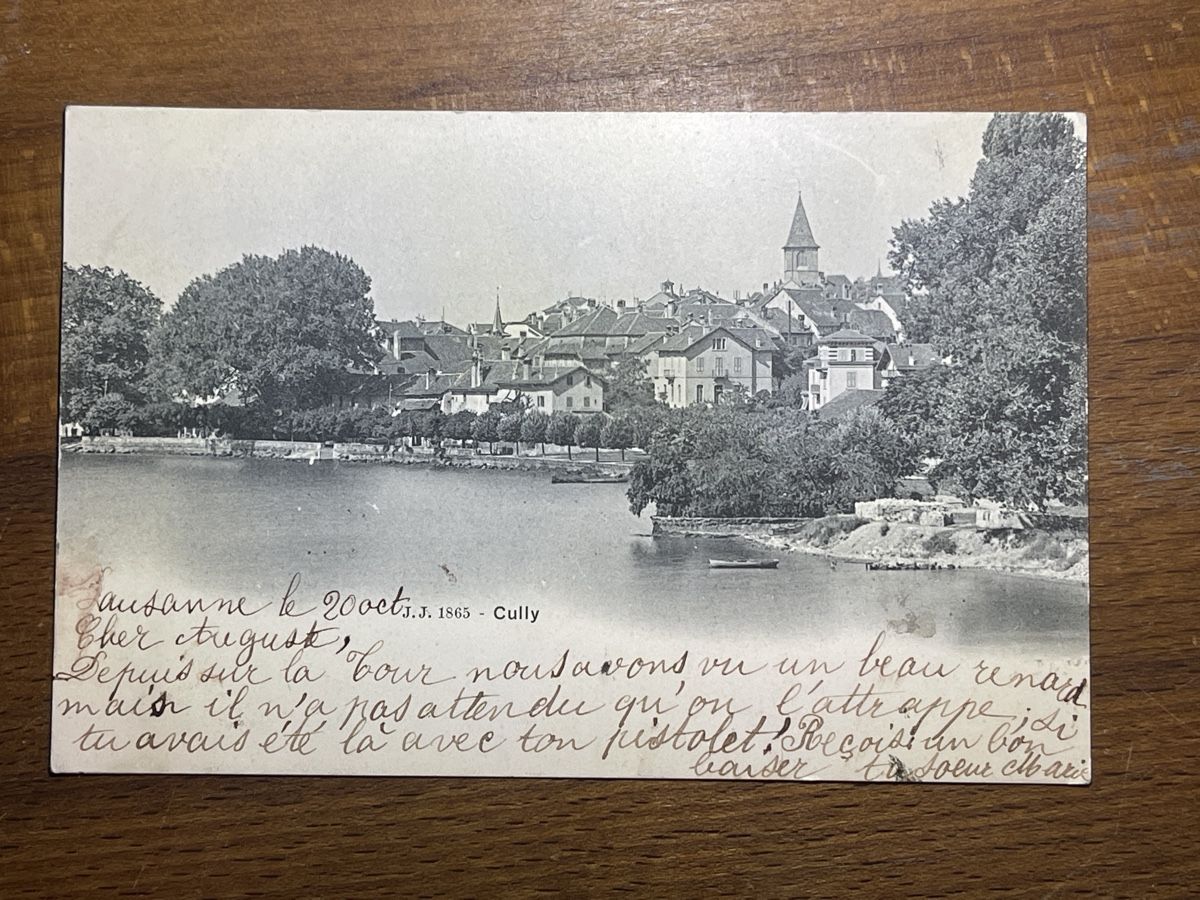 Lausanne le 20 oct.
J.J. 1865 - Cully
Cher August,
Depuis sur la Tour nous avons vu un beau renard
mais il n'a pas attendu qu'on l'attrappe; si
tu avais été là avec ton pistolet! Reçois un bon
baiser ta soeur Marie